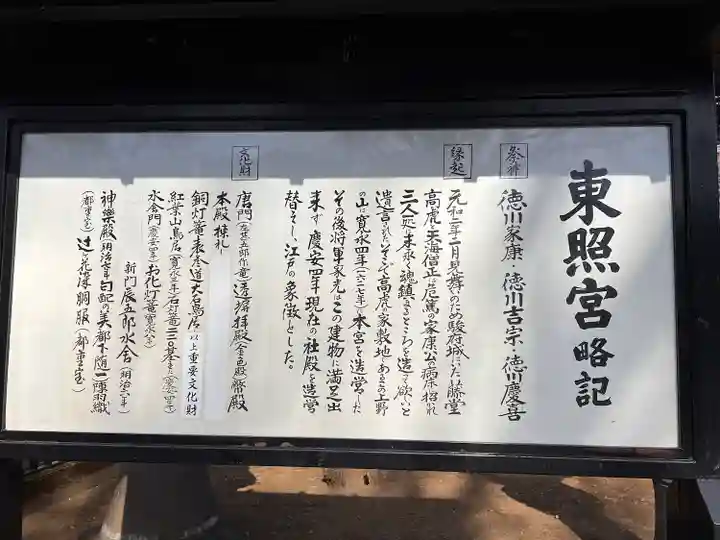 東照宮略記
祭神
徳川家康・徳川吉宗・徳川慶喜
縁起
元和二年二月見舞のため駿府城にいた藤堂
高虎と天海僧正は危篤の家康公の病床に招れ
三人一処に末永く魂鎮まるところを造って欲いと
遺言された。そこで高虎の家敷地であるこの上野
の山に寛永四年(一六二七年)本宮を造営した
その後将軍家光はこの建物に満足出
来ず慶安四年現在の社殿を造営
替をし、江戸の象徴とした。
文化財
唐門(左甚五郎作竜)透塀拝殿(金色殿)幣殿
本殿棟札
銅灯篭表参道大石鳥居以上重要文化財
紅葉山鳥居(寛永三年)石灯篭二二〇基
水舎門(慶安四年)お化灯篭(寛永八年)
新門辰五郎水舎(明治七年)
神樂殿(明治七年勾配の美都下随一)陣羽織
(都重宝)辻ヶ花染胴服(都重宝)